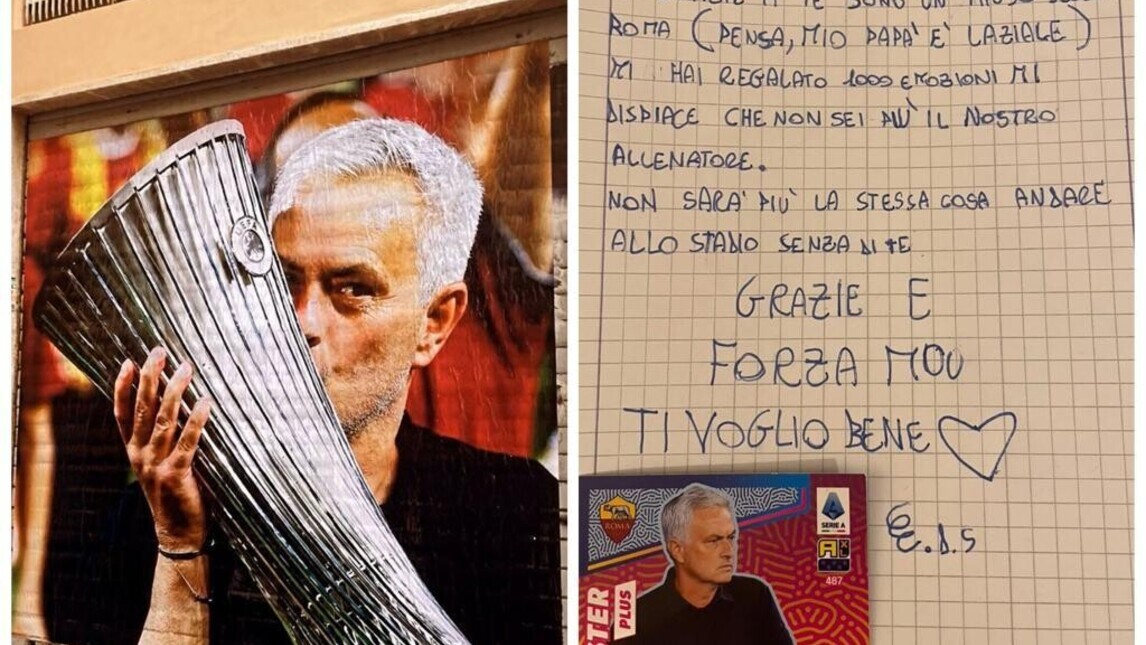 UEFA
TE SONO UN
ROMA (PENSA, MIO PAPA' E' LAZIALE)
MI HAI REGALATO 1000 EMOZIONI MI
DISPIACE CHE NON SEI PIÙ IL NOSTRO
ALLENATORE.
NON SARA' PIÙ LA STESSA COSA ANDARE
ALLO STADIO SENZA DI TE
GRAZIE E
FORZA MOU
TI VOGLIO BENE
E.D.S
ROMA
SERIE A
XL
487
STER
PLUS